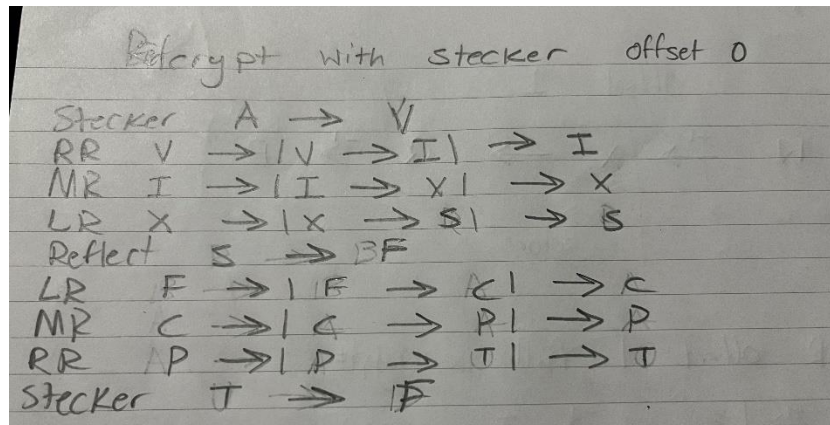 Decrypt with stecker offset 0
Stecker A → V
RR V → | V → I | → I
MR I → | I → X | → X
LR X → | X → S | → S
Reflect S → F
LR F → | F → C | → C
MR C → | C → P | → P
RR P → | P → J | → J
Stecker J → F